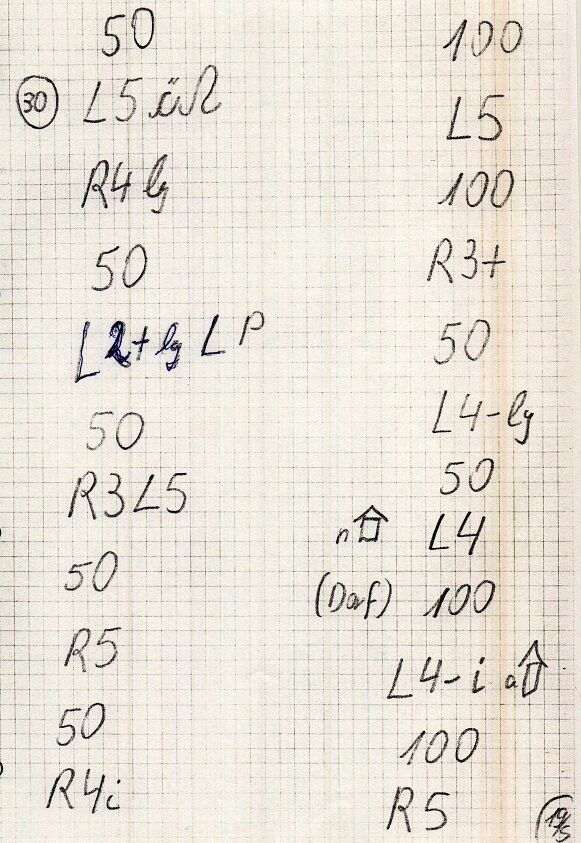 50
30 L5 üR
R4 lg
50
L2+ lg L P
50
R3 L5
50
R5
50
R4i
100
L5
100
R3+
50
L4-lg
50
n L4
(Dorf) 100
L4-i a
100
R5
19/15